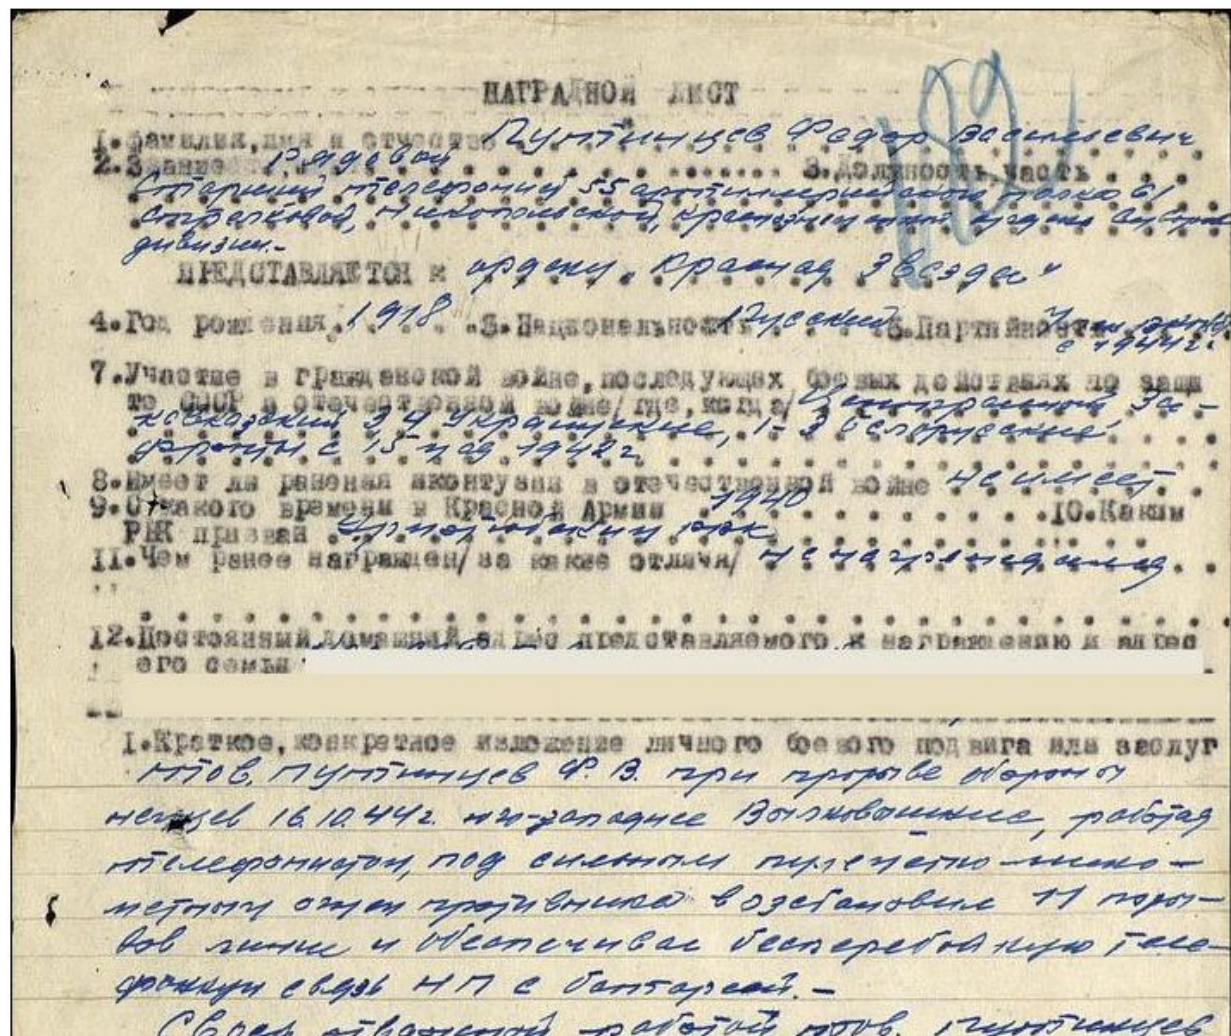 НАГРАДНОЙ ЛИСТ
1. Фамилия, имя и отчество Путинцев Федор Васильевич
2. Звание Рядовой 3. Должность, часть
Старший телефонист 55 артиллерийского полка 61
стрелковой, Никопольской, краснознаменной ордена
дивизии.-
ПРЕДСТАВЛЯЕТСЯ к ордену "Красная Звезда"
4. Год рождения 1918 5. Национальность Русский 6. Партийность
с 1944г.
7. Участие в гражданской войне, последующих боевых действиях по защи
те СССР в отечественной войне/где, когда/ За-
кавказский 3, 4 Украинские, 1-3 Белорусские
фронты с 15 мая 1942г
8. Имеет ли ранения и контузии в отечественной войне не имеет
9. С какого времени в Красной Армии 1940 10. Каким
РВК призван рвк
11. Чем ранее награжден/за какие отличия/ не награждался
12. Постоянный домашний адрес представляемого к награждению и адрес
его семьи
I. Краткое, конкретное изложение личного боевого подвига или заслуг
тов. Путинцев Ф. В. при прорыве обороны
немцев 16.10.44г. юго-западнее Вылковышкис, работая
телефонистом, под сильным мино-
метным огнем противника возстановил 11 поры-
вов линии и обеспечивал бесперебойную теле-
фонную связь НП с батареей.-
Своей отважной работой тов. Путинцев